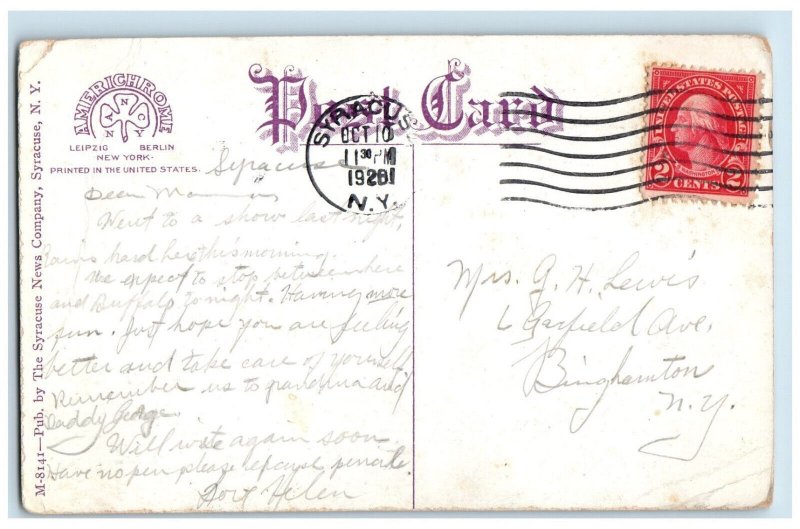 M-8141—Pub. by The Syracuse News Company, Syracuse, N. Y.
AMERICHROME
A N N O Y
LEIPZIG BERLIN
NEW YORK-
PRINTED IN THE UNITED STATES.
Post Card
SYRACUSE
OCT 10
11 30 PM
1928
N.Y.
UNITED STATES POSTAGE
2 CENTS 2
Syracuse
Dear Mamma
Went to a show last night,
rains hard here this morning.
We expect to stop between here
and Buffalo to-night. Having more
fun. Just hope you are feeling
better and take care of yourself.
Remember us to grandma and
Daddy George.
Will write again soon
Have no pen please excuse pencil.
Love Helen
Mrs. G. H. Lewis
6 Garfield Ave.
Binghamton
N.Y.